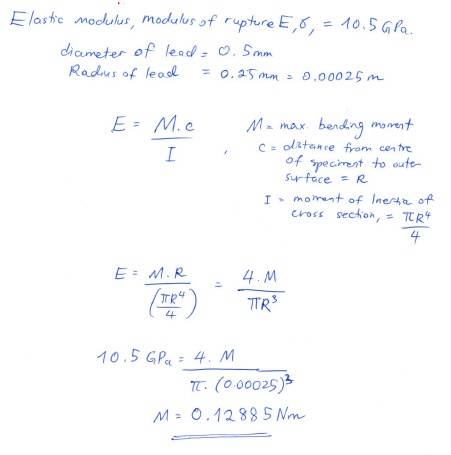 Elastic modulus, modulus of rupture E, σ, = 10.5 GPa.
diameter of lead = 0.5mm
Radius of lead = 0.25mm = 0.00025m
E = M.c / I ,
M = max. bending moment
C = distance from centre
of speciment to outer
surface = R
I = moment of Inertia of
cross section, = πR⁴ / 4
E = M.R / (πR⁴ / 4) = 4.M / πR³
10.5 GPa = 4. M / π. (0.00025)³
M = 0.12885 Nm